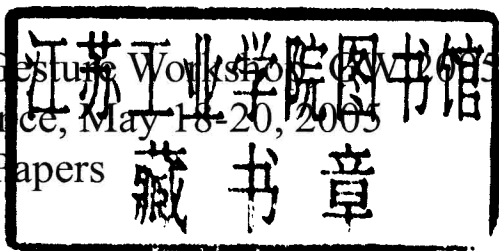 江苏工业学院图书馆
Gesture Workshop, GW 2005
nce, May 18-20, 2005
Papers
藏书章